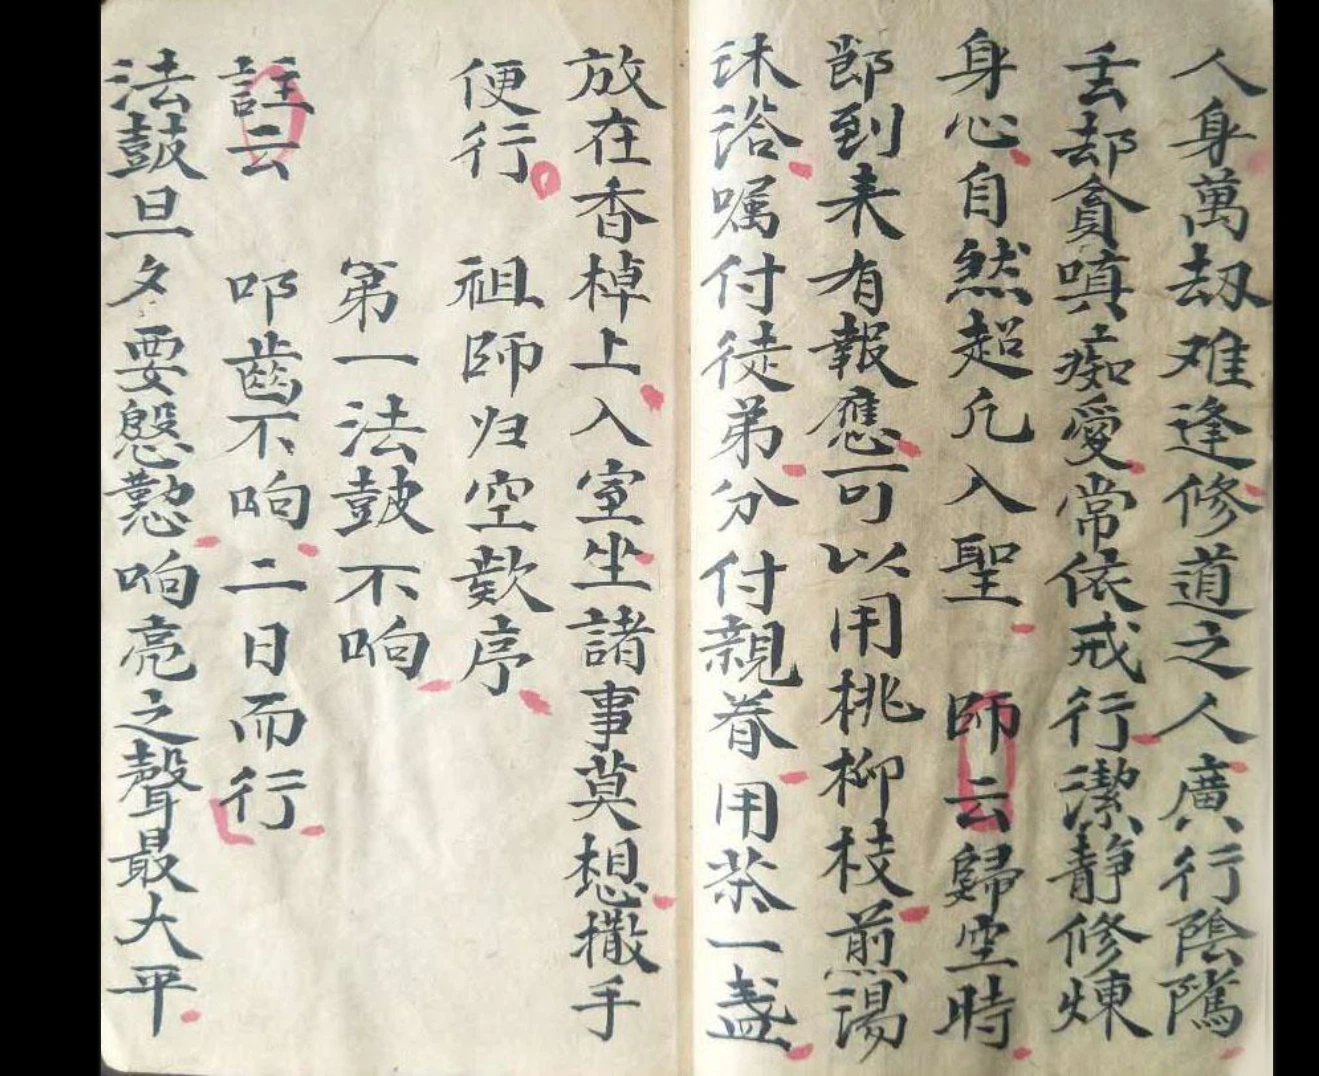 人身萬刼难逢修道之人廣行陰隲
丟却貪嗔痴愛常依戒行潔静修煉
身心自然超凢入聖師云歸空時
郎到来有報應可以用桃柳枝煎湯
沐浴嘱付徒弟分付親眷用茶一盏
放在香棹上入室坐諸事莫想撒手
便行 祖師归空歎序
第一法鼓不响
註云 叩齒不响二日而行
法鼓旦夕要慇懃响亮之聲最大平